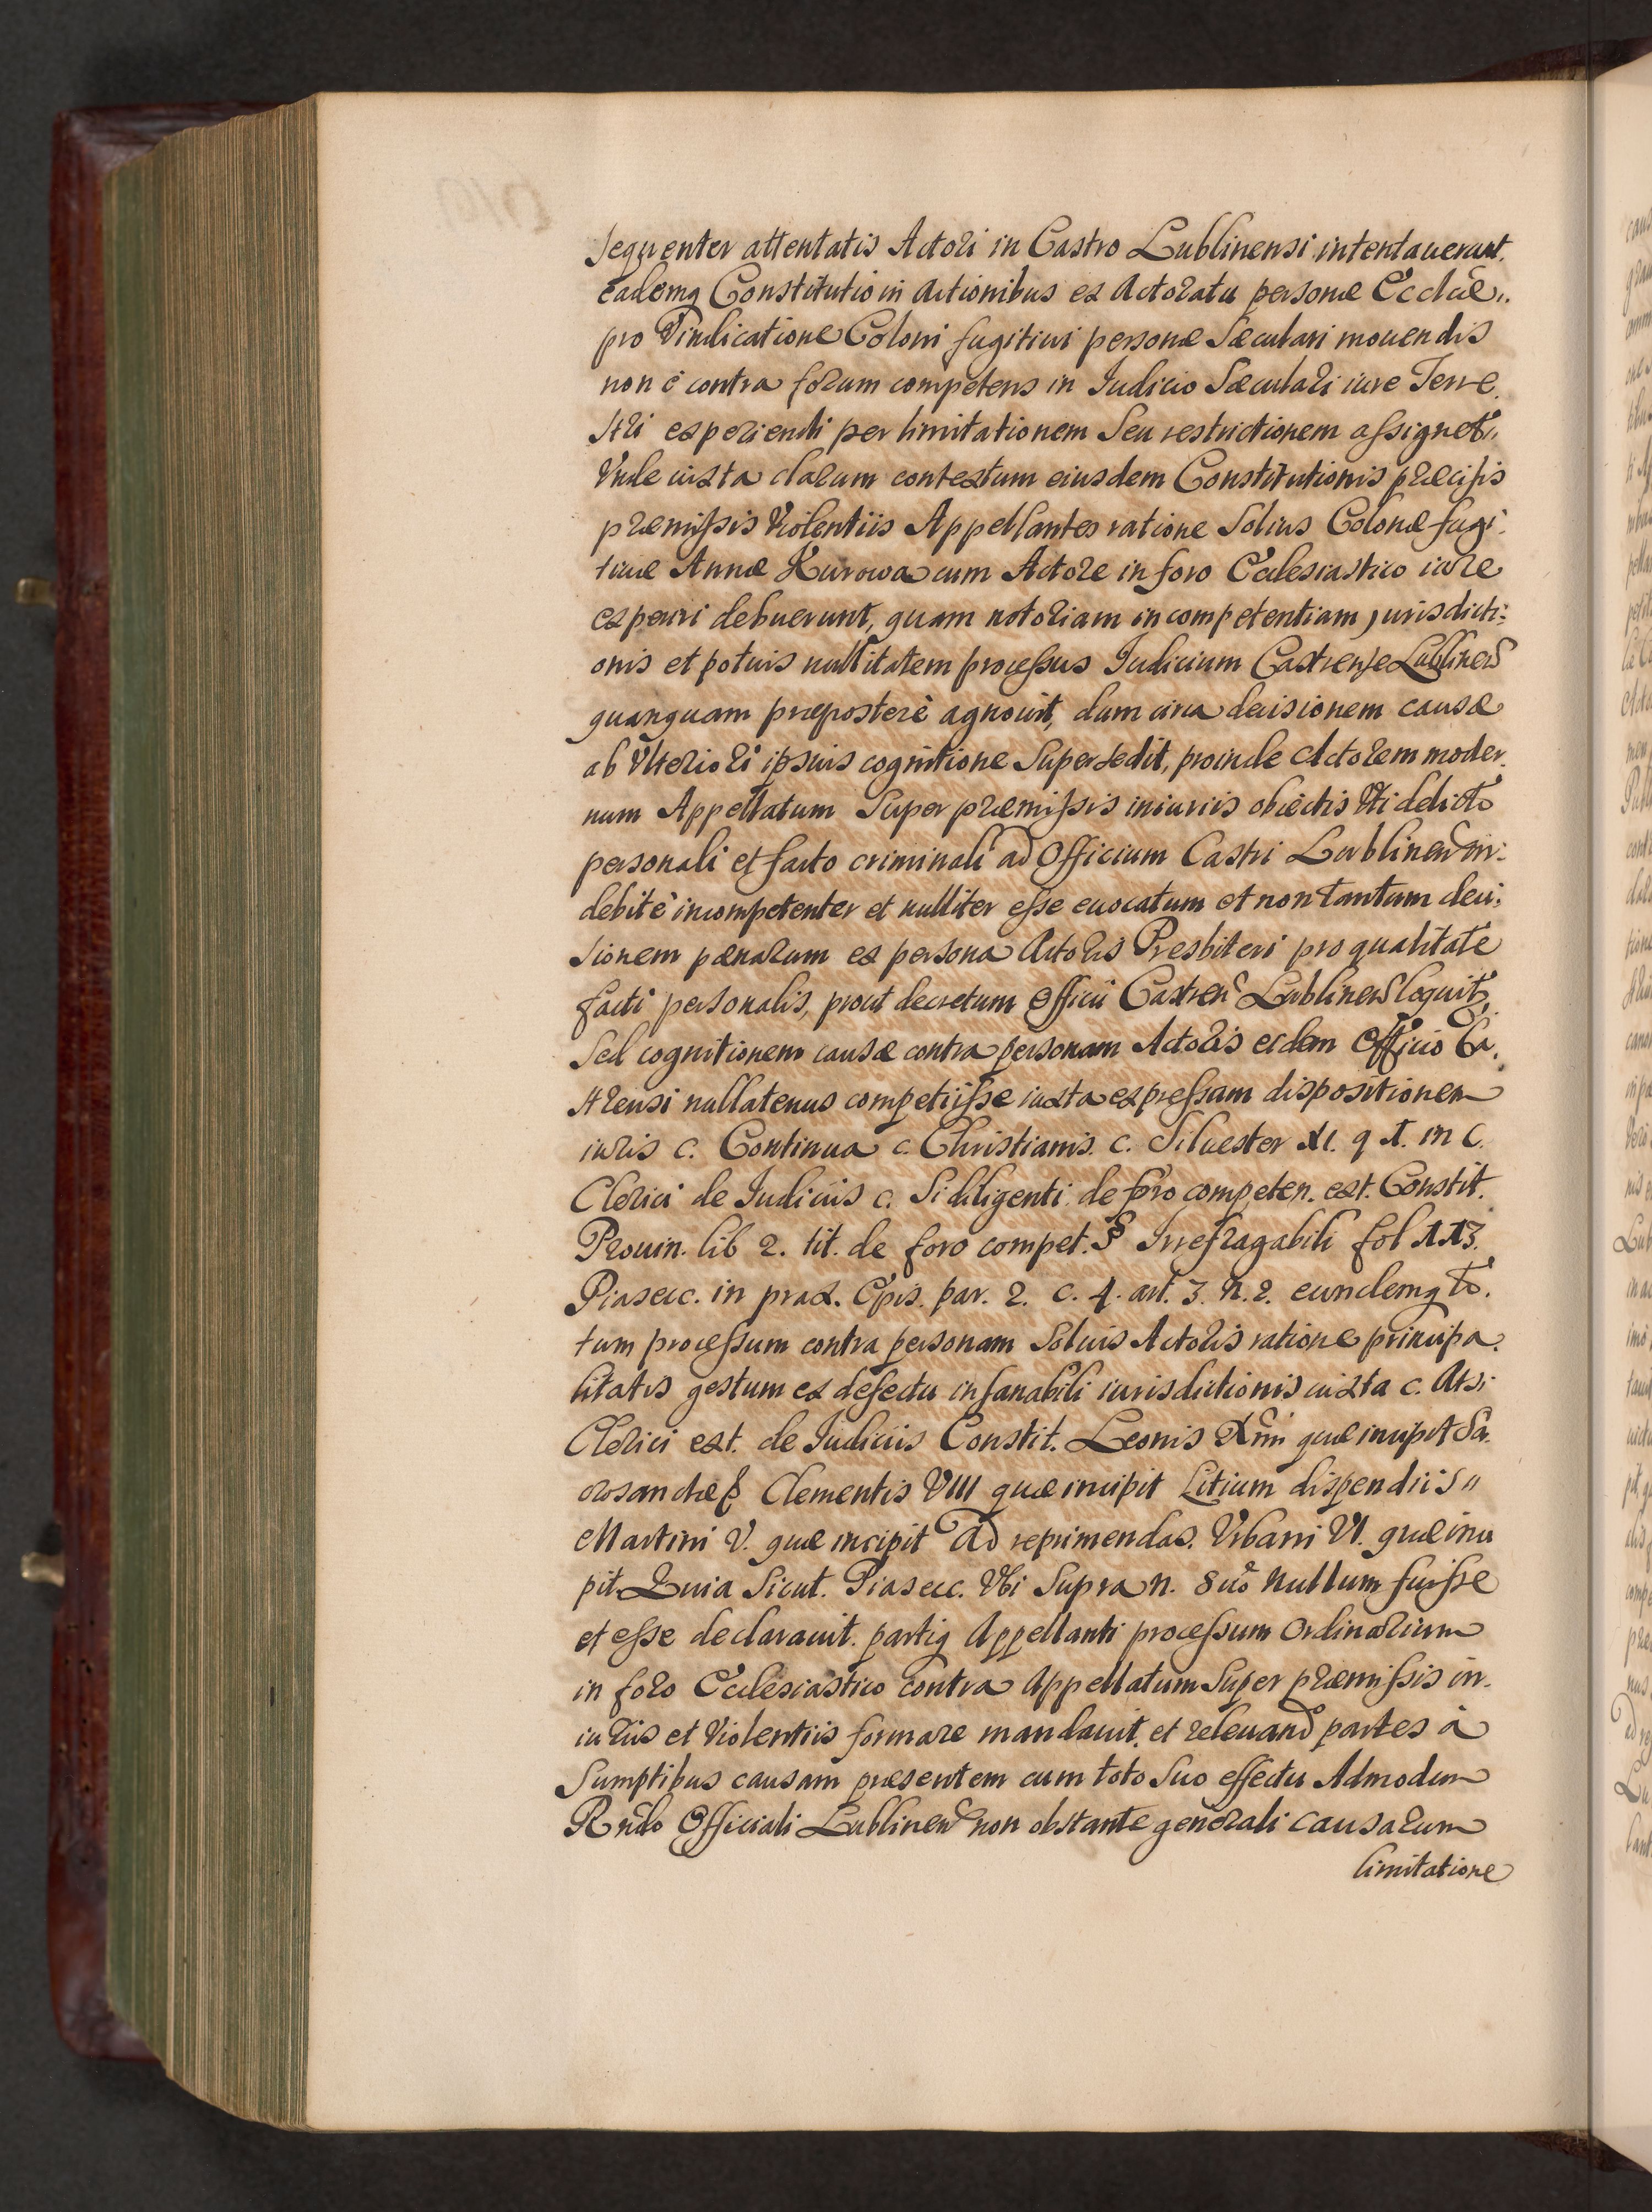 sequenter attentatis Actori in Castro Lublinensi intentauerunt.
eademq Constitutio in Actionibus ex Actoratu personæ Ecclæ,,
pro Vindicatione Coloni fugitiui personæ Sæculari mouendis
non é contra forum competens in Iudicio Sæculari iure Terre
stri experiendi per limitationem Seu restrictionem assignet,,
Vnde iuxta clarum contextum eiusdem Constitutionis præcisis
præmissis Violentiis Appellantes ratione Solius Colonæ fugi:
tiuæ Annæ Kurowa cum Actore in foro Ecclesiastico iure
experiri debuerunt, quam notoriam incompetentiam jurisdicti:
onis et potius nullitatem processus Iudicium Castrense Lublinen
quanquam præposterè agnouit, dum circa decisionem causæ
ab Vlteriori ipsius cognitione Supersedit, proinde Actorem moder.
num Appellatum Super præmissis iniuriis obiectis Vti delicto
personali et facto criminali ad Officium Castri Lublinen in:
debitè incompetenter et nulliter esse euocatum et non tantum deci:
sionem pænarum ex persona Actoris Presbiteri pro qualitate
facti personalis, prout decretum Officii Castren Lublinen loquit,
Sed cognitionem causæ contra personam Actoris eidem Officio Ca,
strensi nullatenus competiisse iuxta expressam dispositionem
iuris c. Continua c. Christianis. c. Siluester XI. q I. in C.
Clerici de Iudiciis c. Si diligenti de foro competen. ext. Constit.
Prouin. lib 2. tit. de foro compet. § Irrefragabili fol 113.
Piasecc. in prax. Epis. par. 2. c. 4. art. 3. n. 2. eundemq to.
tum processum contra personam Solius Actoris ratione principa.
litatis gestum ex defectu insanabili iurisdictionis iuxta c. At si
Clerici ext. de Iudiciis Constit. Leonis quæ incipit Sa.
crosanctæ Clementis VIII quæ incipit Litium dispendiis,,
Martini V. quæ incipit Ad reprimendas. Vrbani VI. quæ inci
pit. Quia Sicut. Piasecc. Vbi Supra n. 8uo Nullum fuisse
et esse declarauit. partiq Appellanti processum Ordinarium
in foro Ecclesiastico contra Appellatum Super præmissis in.
iuriis et Violentiis formare mandauit. et releuand partes à
Sumptibus causam præsentem cum toto Suo effectu Admodum
Rndo Officiali Lublinen non obstante generali causarum
limitatione